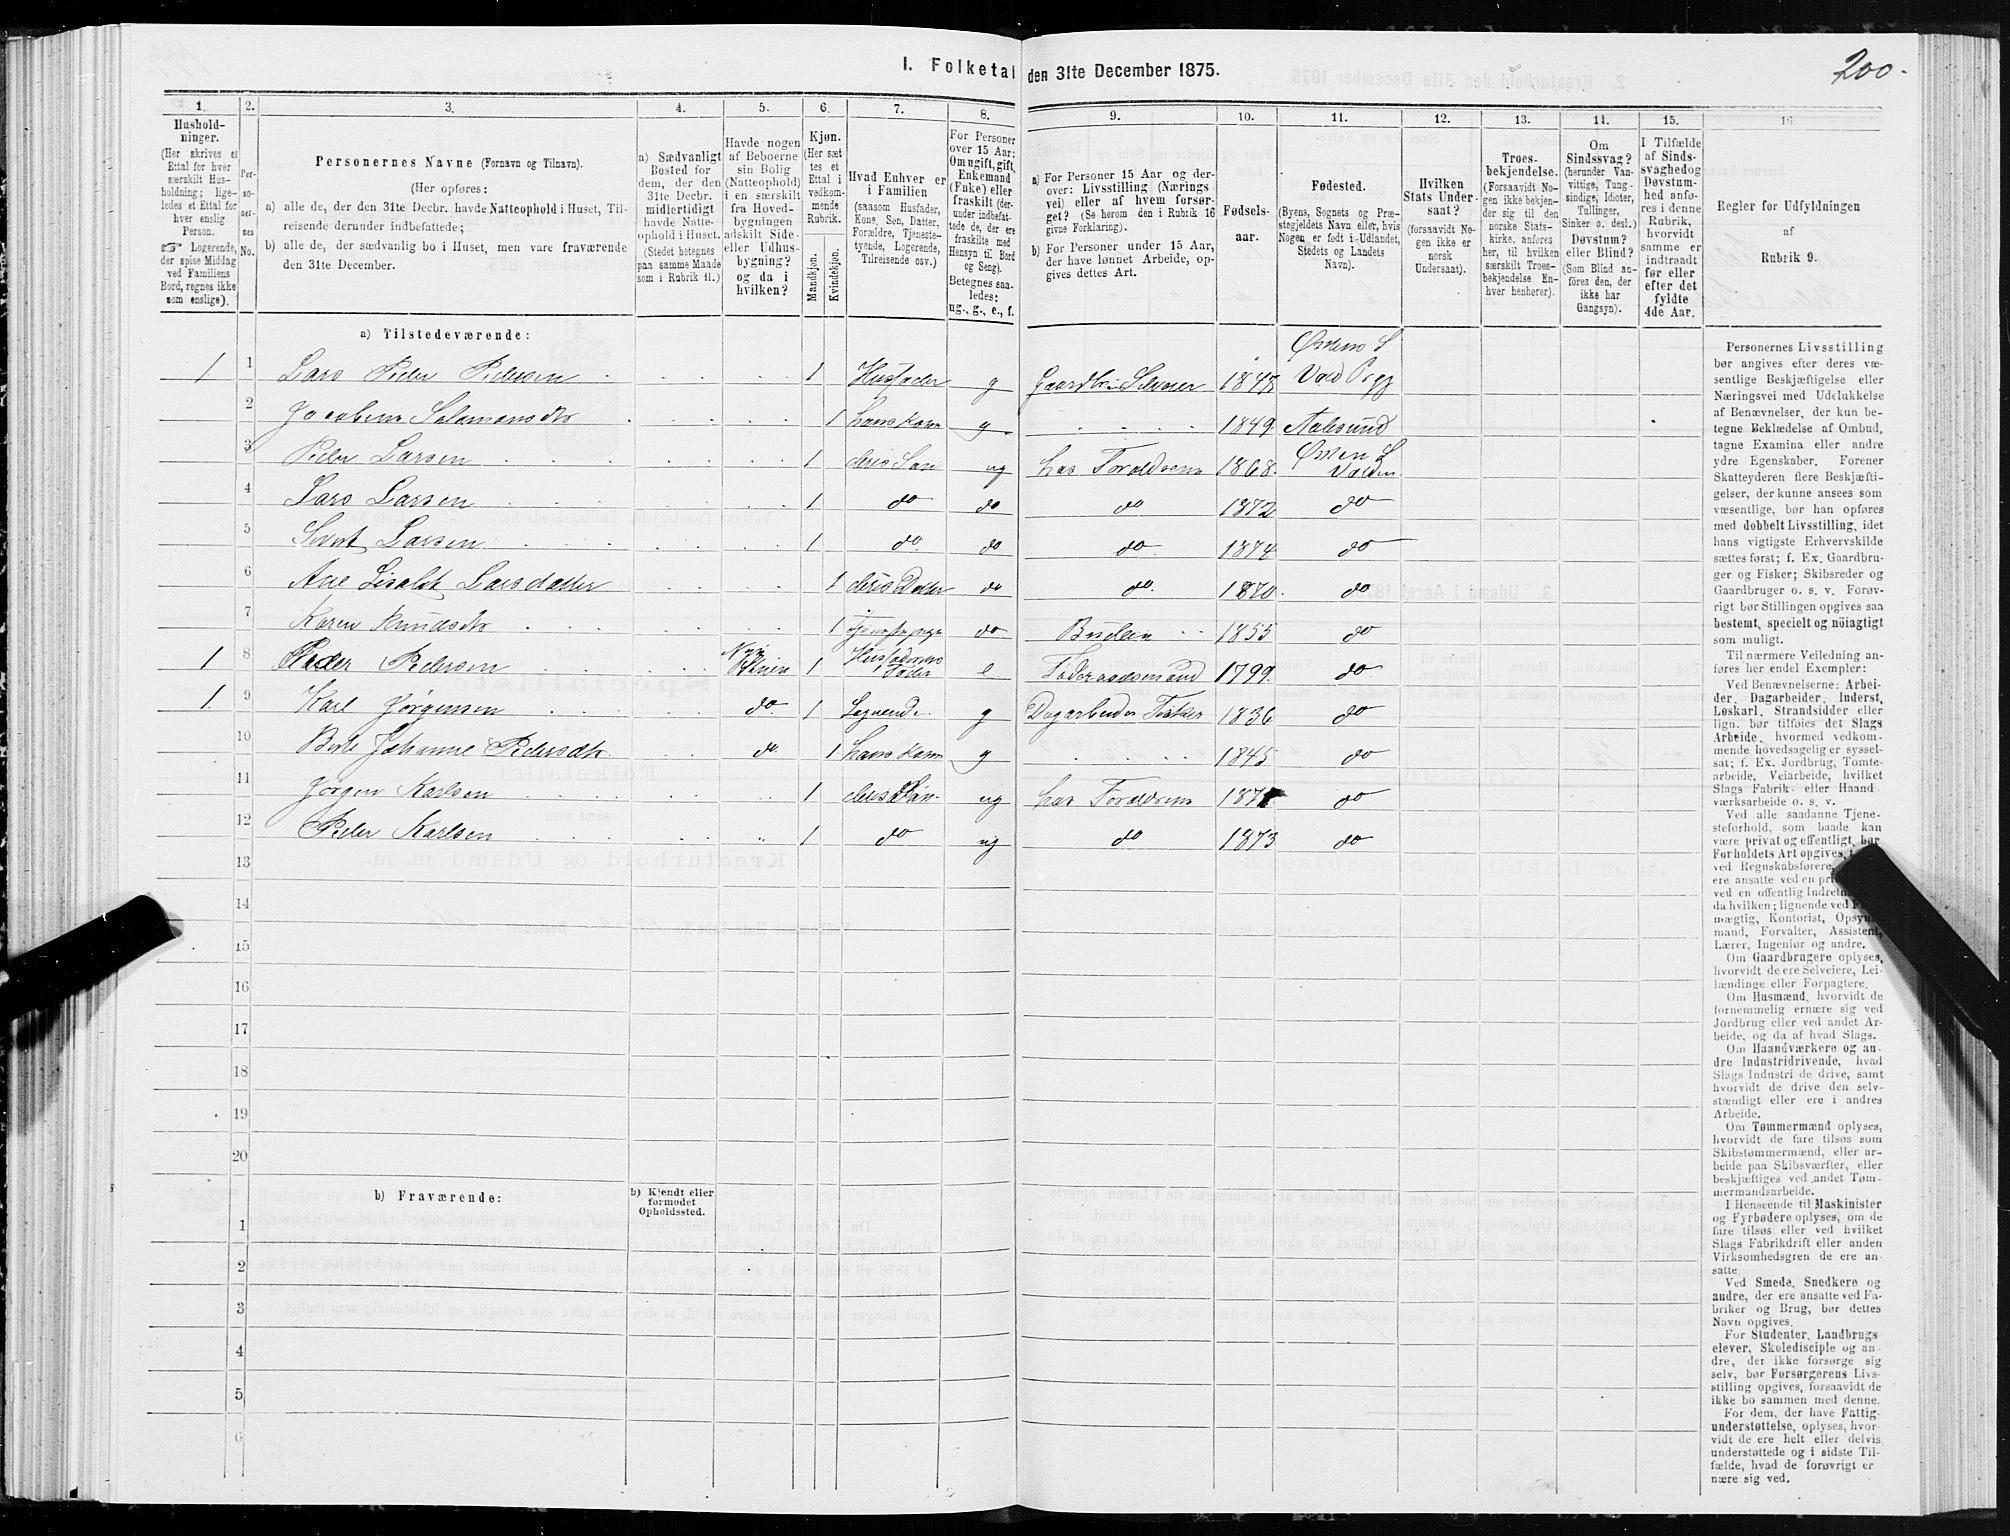 200.
I. Folketal den 31te December 1875.
1. 2. 3. 4. 5. 6. 7. 8. 9. 10. 11. 12. 13. 14. 15. 16.
Husholdninger.
(Her skrives et Ettal for hver særskilt Husholdning; ligeledes et Ettal for hver enslig Person.
☞ Logerende, der spise Middag ved Familiens Bord, regnes ikke som enslige).
Personernes No.
Personernes Navne (Fornavn og Tilnavn).
(Her opføres:
a) alle de, der den 31te Decbr. havde Natteophold i Huset, Tilreisende derunder indbefattede;
b) alle de, der sædvanlig bo i Huset, men vare fraværende den 31te December.
a) Sædvanligt Bosted for dem, der den 31te Decbr. midlertidigt havde Natteophold i Huset.
(Stedet betegnes paa samme Maade som i Rubrik 11.)
Havde nogen af Beboerne sin Bolig (Natteophold) i en særskilt fra Hovedbygningen adskilt Side- eller Udhusbygning? og da i hvilken?
Kjøn.
(Her sættes et Ettal i vedkommende Rubrik.
Mandkjøn.
Kvindekjøn.
Hvad Enhver er i Familien
(saasom Husfader, Kone, Søn, Datter, Forældre, Tjenestetyende, Logerende, Tilreisende osv.)
For Personer over 15 Aar: Om ugift, gift, Enkemand (Enke) eller fraskilt (derunder indbefattede de, der ere fraskilte med Hensyn til Bord og Seng).
Betegnes saaledes: ug., g., e., f.
a) For Personer 15 Aar og derover: Livsstilling (Næringsvei) eller af hvem forsørget? (Se herom den i Rubrik 16 givne Forklaring).
b) For Personer under 15 Aar, der have lønnet Arbeide, opgives dettes Art.
Fødselsaar.
Fødested.
(Byens, Sognets og Præstegjeldets Navn eller, hvis Nogen er født i Udlandet, Stedets og Landets Navn).
Hvilken Stats Undersaat?
(forsaavidt Nogen ikke er norsk Undersaat).
Troesbekjendelse.
(Forsaavidt Nogen ikke bekjender sig til den norske Statskirke, anføres her, til hvilken særskilt Troesbekjendelse Enhver henhører).
Om Sindssvag?
(herunder Vanvittige, Tungsindige, Idioter, Tullinger, Sinker o. desl.)
Døvstum? eller Blind?
(Som Blind anføres den, der ikke har Gangsyn).
I Tilfælde af Sindssvaghed og Døvstumhed anføres i denne Rubrik, hvorvidt samme er indtraadt før eller efter det fyldte 4de Aar.
Regler for Udfyldningen af Rubrik 9.
a) Tilstedeværende:
1 1 Lars Peder Pedersen 1 Husfader g Gaardbr. Selveier 1848 Østens S Vold Prgj
2 Jacobine Salamonsdtr 1 hans Kone g 1849 Aalesund
3 Peder Larsen 1 deres Søn ug hos Foraldrene 1868 Østen S Volden
4 Lars Larsen 1 do do do 1872 do
5 Sivert Larsen 1 do. do do. 1874 do
6 Ane Lisabet Larsdatter 1 deres Datter do do. 1870 do
7 Karen Knudsdtr 1 do Budeie 1855 do
1 8 Peder Pedersen 1 Husfaderens Fader e Føderaadsmand 1799 do
1 9 Karl Jørgensen do. 1 Logerende g Dagarbeider Fisker 1836 do
10 Berte Johanne Pedersdtr do. 1 hans Kone g 1845 do
11 Jørgen Karlsen 1 deres Søn ug hos Foraldrene 1871 do
12 Peder Karlsen 1 do ug do 1873 do
13
14
15
16
17
18
19
20
b) Fraværende:
b) Kjendt eller formodet Opholdssted.
1
2
3
4
5
6
Personernes Livsstilling
bør angives efter deres væ-
sentlige Beskjæftigelse eller
Næringsvei med Udelukkelse
af Benævnelser, der kun be-
tegne Beklædelse af Ombud,
tagne Examina eller andre
ydre Egenskaber. Forener
Skatteyderen flere Beskjæfti-
gelser, der kunne ansees som
væsentlige, bør han opføres
med dobbelt Livsstilling, idet
hans vigtigste Erhvervskilde
sættes først; f. Ex. Gaardbru-
ger og Fisker; Skibsreder og
Gaardbruger o. s. v. Forøv-
rigt bør Stillingen opgives saa
bestemt, specielt og nöiagtigt
som muligt.
Til nærmere Veiledning an-
føres her endel Exempler:
Ved Benævnelserne: Arbei-
der, Dagarbeider, Inderst,
Løskarl, Strandsidder eller
lign. bør tilføies det Slags
Arbeide, hvormed vedkom-
mende hovedsagelig er syssel-
sat; f. Ex. Jordbrug, Tomte-
arbeide, Veiarbeide, hvilket
Slags Fabrik- eller Haand-
værksarbeide o. s. v.
Ved alle saadanne Tjene-
steforhold, som baade kan
være privat og offentligt, bør
Forholdets Art opgives,
ved Regnskabsførere,
ere ansatte ved en
ved en offentlig
da hvilken; lignende ved
mægtig, Kontorist,
mand, Forvalter, Assistent,
Lærer, Ingeniør og andre.
Om Gaardbrugere oplyses,
hvorvidt de ere Selveiere, Lei-
lændinge eller Forpagtere.
Om Husmænd, hvorvidt de
fornemmelig ernære sig ved
Jordbrug eller ved andet Ar-
beide, og da af hvad Slags.
Om Haandværkere og an-
dre Industridrivende, hvad
Slags Industri de drive, samt
hvorvidt de drive den selv-
stændigt eller ere i andres
Arbeide.
Om Tømmermænd oplyses,
hvorvidt de fare tilsøs som
Skibstømmermænd, eller ar-
beide paa Skibsværfter, eller
beskjæftiges ved andet Tøm-
mermandsarbeide.
I Henseende til Maskinister
og Fyrbødere oplyses, om de
fare tilsøs eller ved hvilket
Slags Fabrikdrift eller anden
Virksomhedsgren de ere an-
satte.
Ved Smede, Snedkere og
andre, der ere ansatte ved Fa-
briker og Brug, bør dettes
Navn opgives.
For Studenter, Landbrugs-
elever, Skoledisciple og an-
dre, der ikke forsørge sig
selv, bør Forsørgerens Livs-
stilling opgives, forsaavidt de
ikke bo sammen med denne.
For dem, der have Fattig-
understøttelse, oplyses, hvor-
vidt de ere helt eller delvis
understøttede og i sidste Til-
fælde, hvad de forøvrigt er-
nære sig ved.